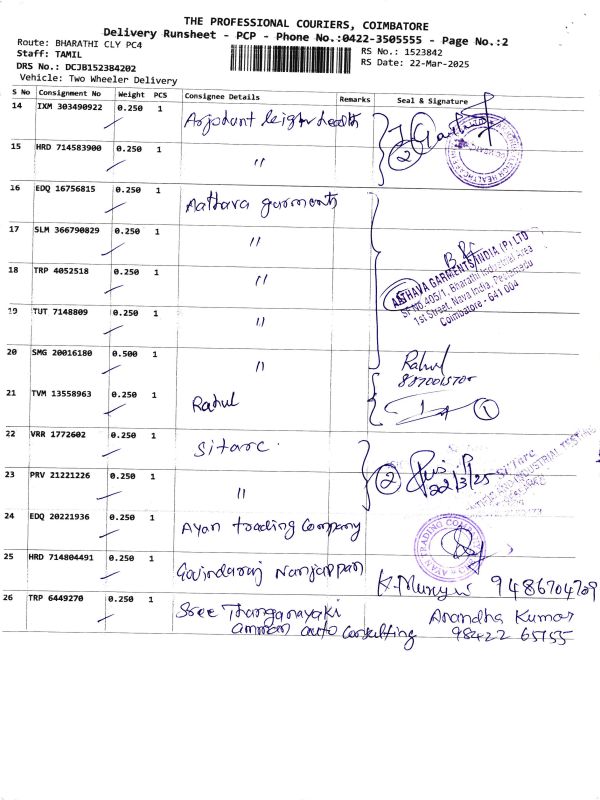 THE PROFESSIONAL COURIERS, COIMBATORE
Delivery Runsheet - PCP - Phone No.:0422-3505555 - Page No.:2
Route: BHARATHI CLY PC4
Staff: TAMIL
DRS No.: DCJB152384202
Vehicle: Two Wheeler Delivery
RS No.: 1523842
RS Date: 22-Mar-2025
S No Consignment No Weight PCS Consignee Details Remarks Seal & Signature
14 IXM 303490922 0.250 1
15 HRD 714583900 0.250 1 〃
2
16 EDQ 16756815 0.250 1 Aathava garments
17 SLM 366790829 0.250 1 〃
18 TRP 4052518 0.250 1 〃
AATHAVA GARMENTS INDIA (P) LTD
SF No.405/1, Bharathi Industrial Area
1st Street, Nava India, Peelamedu
Coimbatore - 641 004
19 TUT 7148809 0.250 1 〃
20 SMG 20016180 0.500 1 〃
Rahul
8870015705
21 TVM 13558963 0.250 1 Rahul
1
22 VRR 1772602 0.250 1 Sitarc
23 PRV 21221226 0.250 1 〃
2
22/3/25
24 EDQ 20221936 0.250 1 Ayan trading Company
25 HRD 714804491 0.250 1 Govindaraj Nanjappan
9486704709
26 TRP 6449270 0.250 1 Sree Thanganayaki
amman auto Consulting
Anandha Kumar
98422 65155